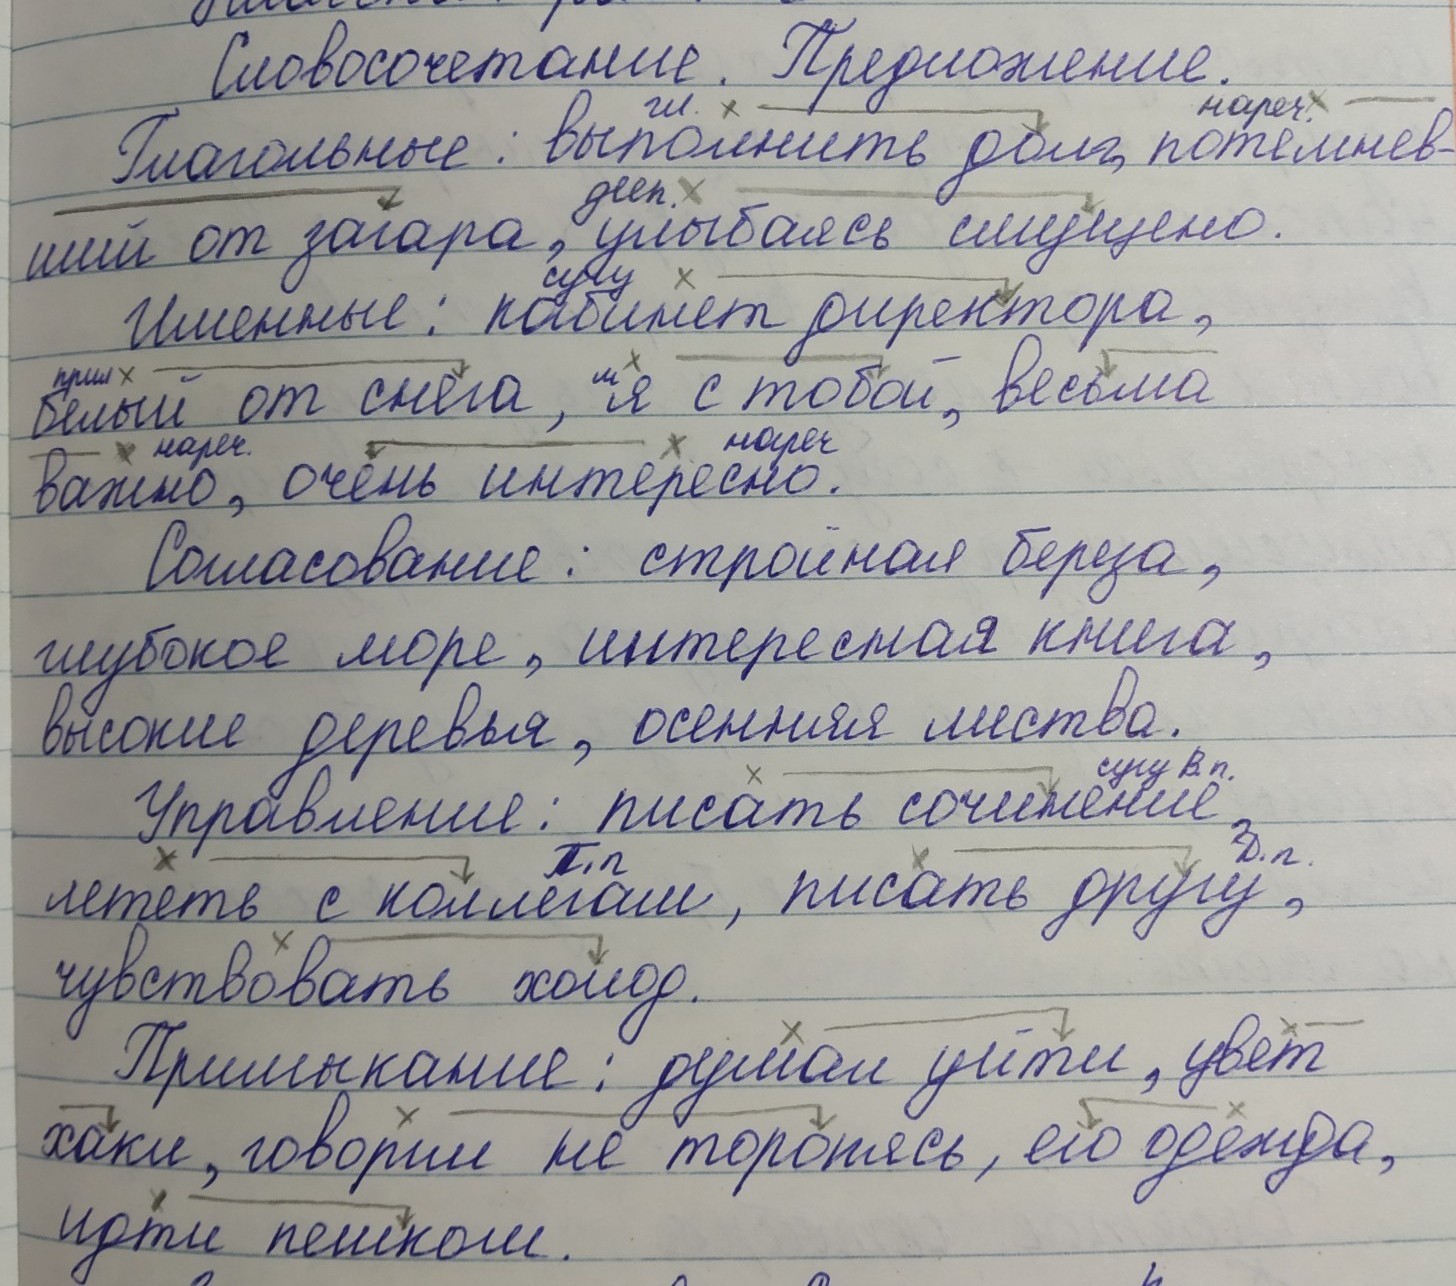 Словосочетание. Предложение.
гл. х нареч. х
Глагольные: выполнить долг, потемнев-
дееп. х
ший от загара, улыбаясь смущено.
сущ х
Именные: кабинет директора,
прил х м х
белый от снега, я с тобой, весьма
х нареч. х нареч
важно, очень интересно.
Согласование: стройная береза,
глубокое море, интересная книга,
высокие деревья, осенняя листва.
х сущ В.п.
Управление: писать сочинение,
х Т.п х Д.п.
лететь с коллегами, писать другу,
х
чувствовать холод.
х х
Примыкание: думал уйти, цвет
х х
хаки, говорил не торопясь, его одежда,
х
идти пешком.